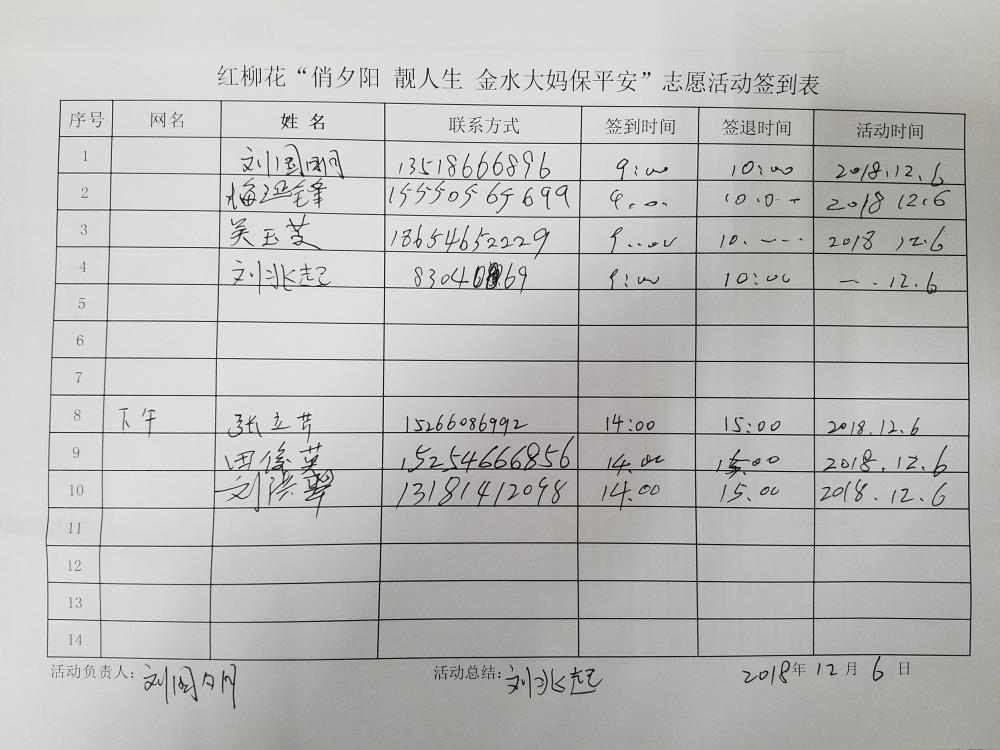 红柳花“俏夕阳 靓人生 金水大妈保平安”志愿活动签到表
序号 网名 姓名 联系方式 签到时间 签退时间 活动时间
1 刘国 13518666896 9:00 10:00 2018.12.6
2 15550565699 9.0.0. 10.0.0 2018 12.6
3 吴玉芝 18654652229 9..00 10. 2018 12.6
4 刘兆起 9:00 10:00 12.6
5
6
7
8 下午 张立芹 15266086992 14:00 15:00 2018.12.6
9 田俊英 15254666856 14.00 15.00 2018.12.6
10 刘洪翠 13181412098 14.00 15.00 2018.12.6
11
12
13
14
活动负责人：刘国 活动总结：刘兆起 2018年12月6日